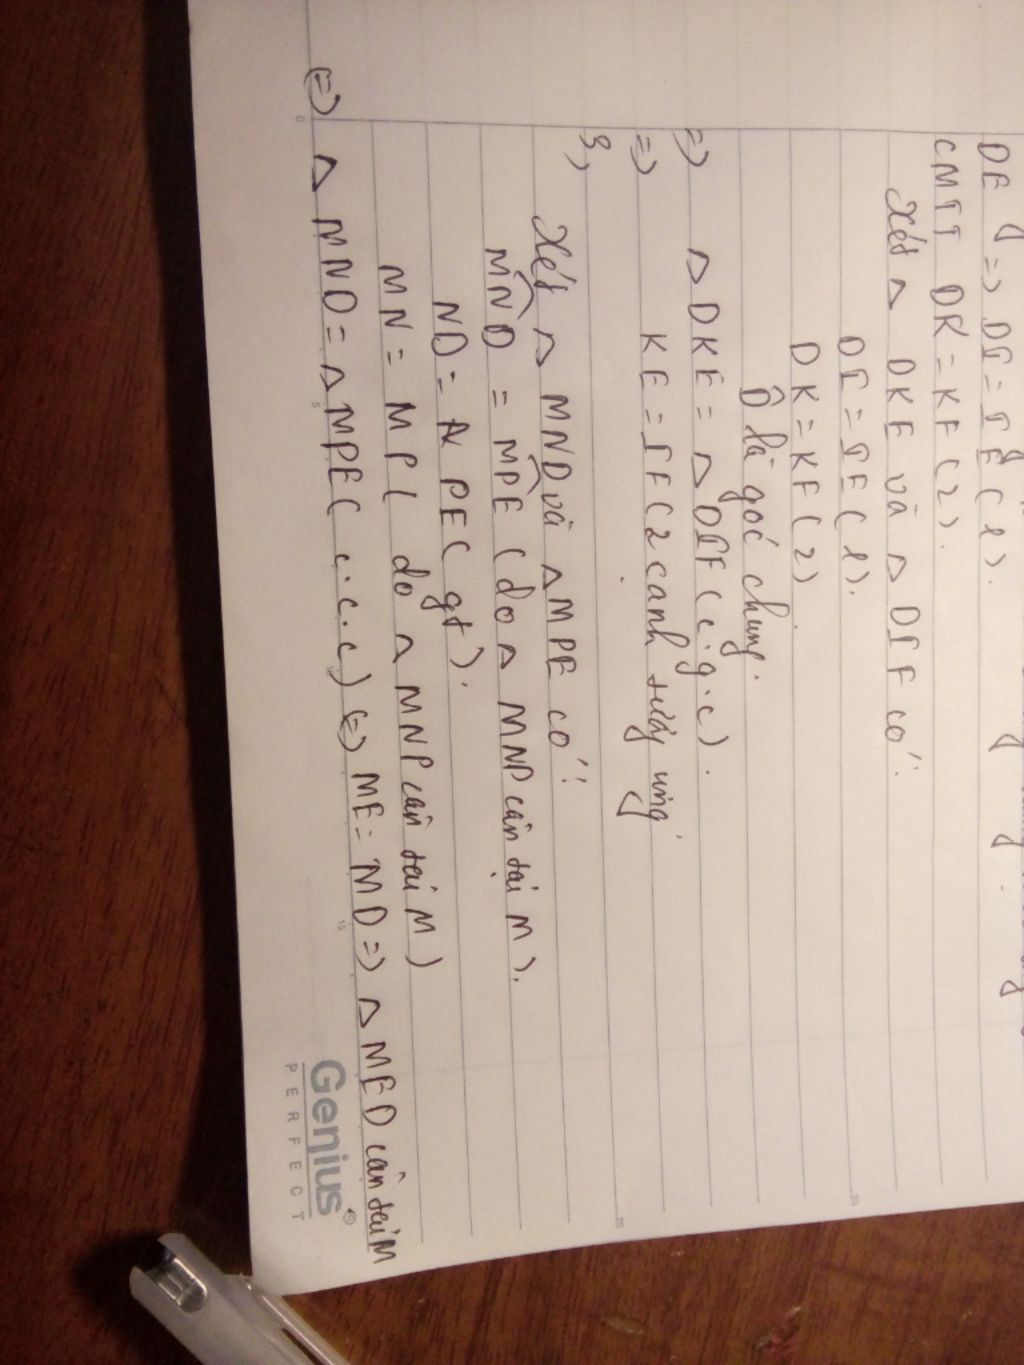 DE => DI = IE (1).
CMTT DK = KF (2).
Xét △ DKE và △ DIF có:
DI = IE (1).
DK = KF (2).
D̂ là góc chung.
=) △ DKE = △ DIF (c.g.c).
=) KE = IF (2 cạnh tương ứng
3,
Xét △ MND và △ MPE có:
MND = MPE (do △ MNP cân tại M).
ND = PE (gt).
MN = MP ( do △ MNP cân tại M)
(=) △ MND = △ MPE ( c.c.c) (=) ME = MD =) △ MED cân tại M
Genius
PERFECT
0
5
15
20
25